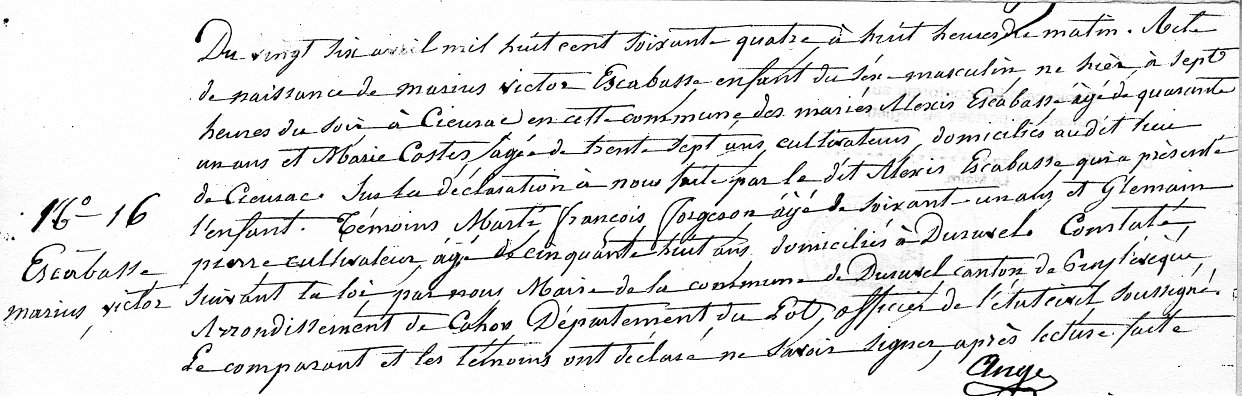 Du vingt six avril mil huit cent soixante quatre, à huit heures du matin. Acte
de naissance de marius victor Escabasse enfant du séx-masculin né hièr, à sept
heures du soir à Cieurac en cette commune, des mariés Alexis Escabasse âgé de quarante
un ans et Marie Costes, âgée de trente sept ans, cultivateurs, domiciliés au dit lieu
de Cieurac. Sur la déclaration à nous faite par le dit Alexis Escabasse qui a présenté
l'enfant. Témoins Marté françois forgeron âgé de soixant-un ans et Glemain
pierre cultivateur, âgé de cinquante huit ans, domiciliés à Duravel. Constaté,
suivant la loi, par nous Maire de la commune de Duravel, canton de Puylévèque
Arrondissement de Cahors Département du Lot, officier de l'état civil soussigné.
Le comparant et les témoins ont déclaré ne savoir signer, après lecture faite
Nº 16
Escabasse
marius, victor
Ange